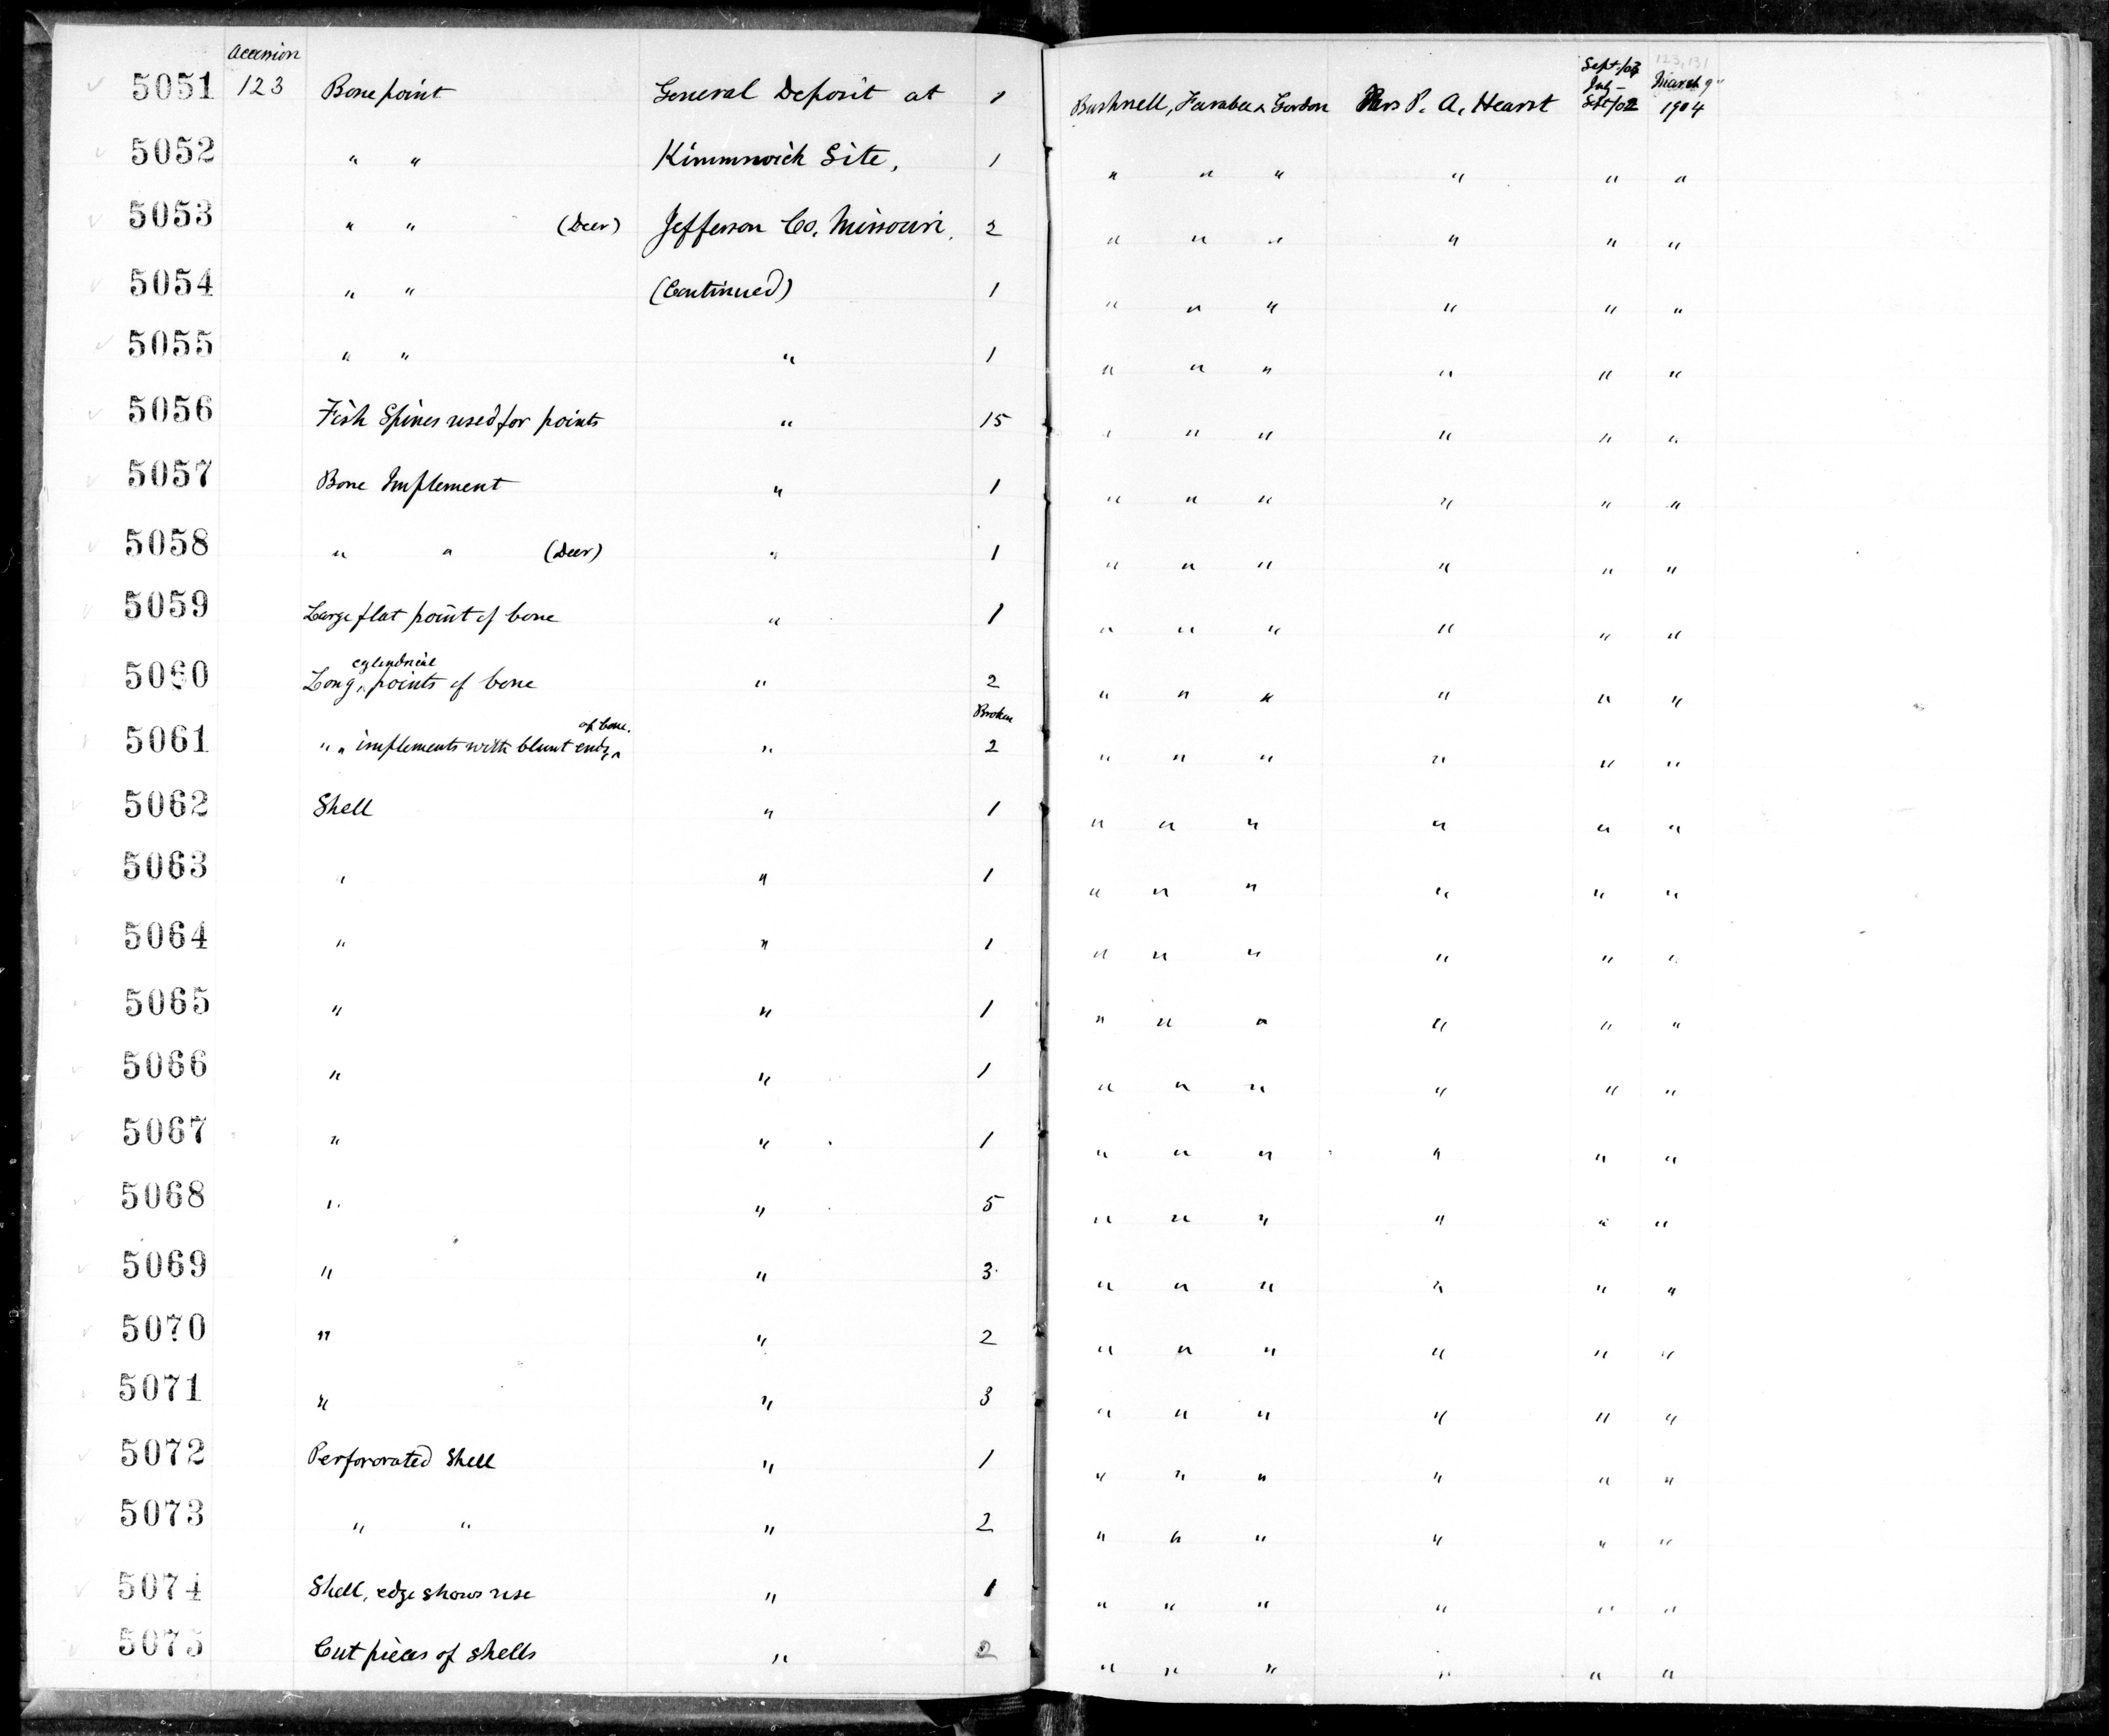 Accession
5051 123 Bone point General Deposit at 1 Bushnell, Farabee & Gordon Mrs P. A. Hearst Sept/03 July – Sept/02 March 9" 1904
123, 131
5052 " " Kimmswick Site, 1 " " " " " "
5053 " " (Deer) Jefferson Co. Missouri. 2 " " " " " "
5054 " " (Continued) 1 " " " " " "
5055 " " " 1 " " " " " "
5056 Fish Spines used for points " 15 " " " " " "
5057 Bone Implement " 1 " " " " " "
5058 " " (Deer) " 1 " " " " " "
5059 Large flat point of bone " 1 " " " " " "
5060 Long cylindrical points of bone " 2 " " " " " "
5061 " " implements with blunt ends of bone. " Broken 2 " " " " " "
5062 Shell " 1 " " " " " "
5063 " " 1 " " " " " "
5064 " " 1 " " " " " "
5065 " " 1 " " " " " "
5066 " " 1 " " " " " "
5067 " " 1 " " " " " "
5068 " " 5 " " " " " "
5069 " " 3 " " " " " "
5070 " " 2 " " " " " "
5071 " " 3 " " " " " "
5072 Perfororated Shell " 1 " " " " " "
5073 " " " 2 " " " " " "
5074 Shell, edge shows use " 1 " " " " " "
5075 Cut pieces of shells " 2 " " " " " "